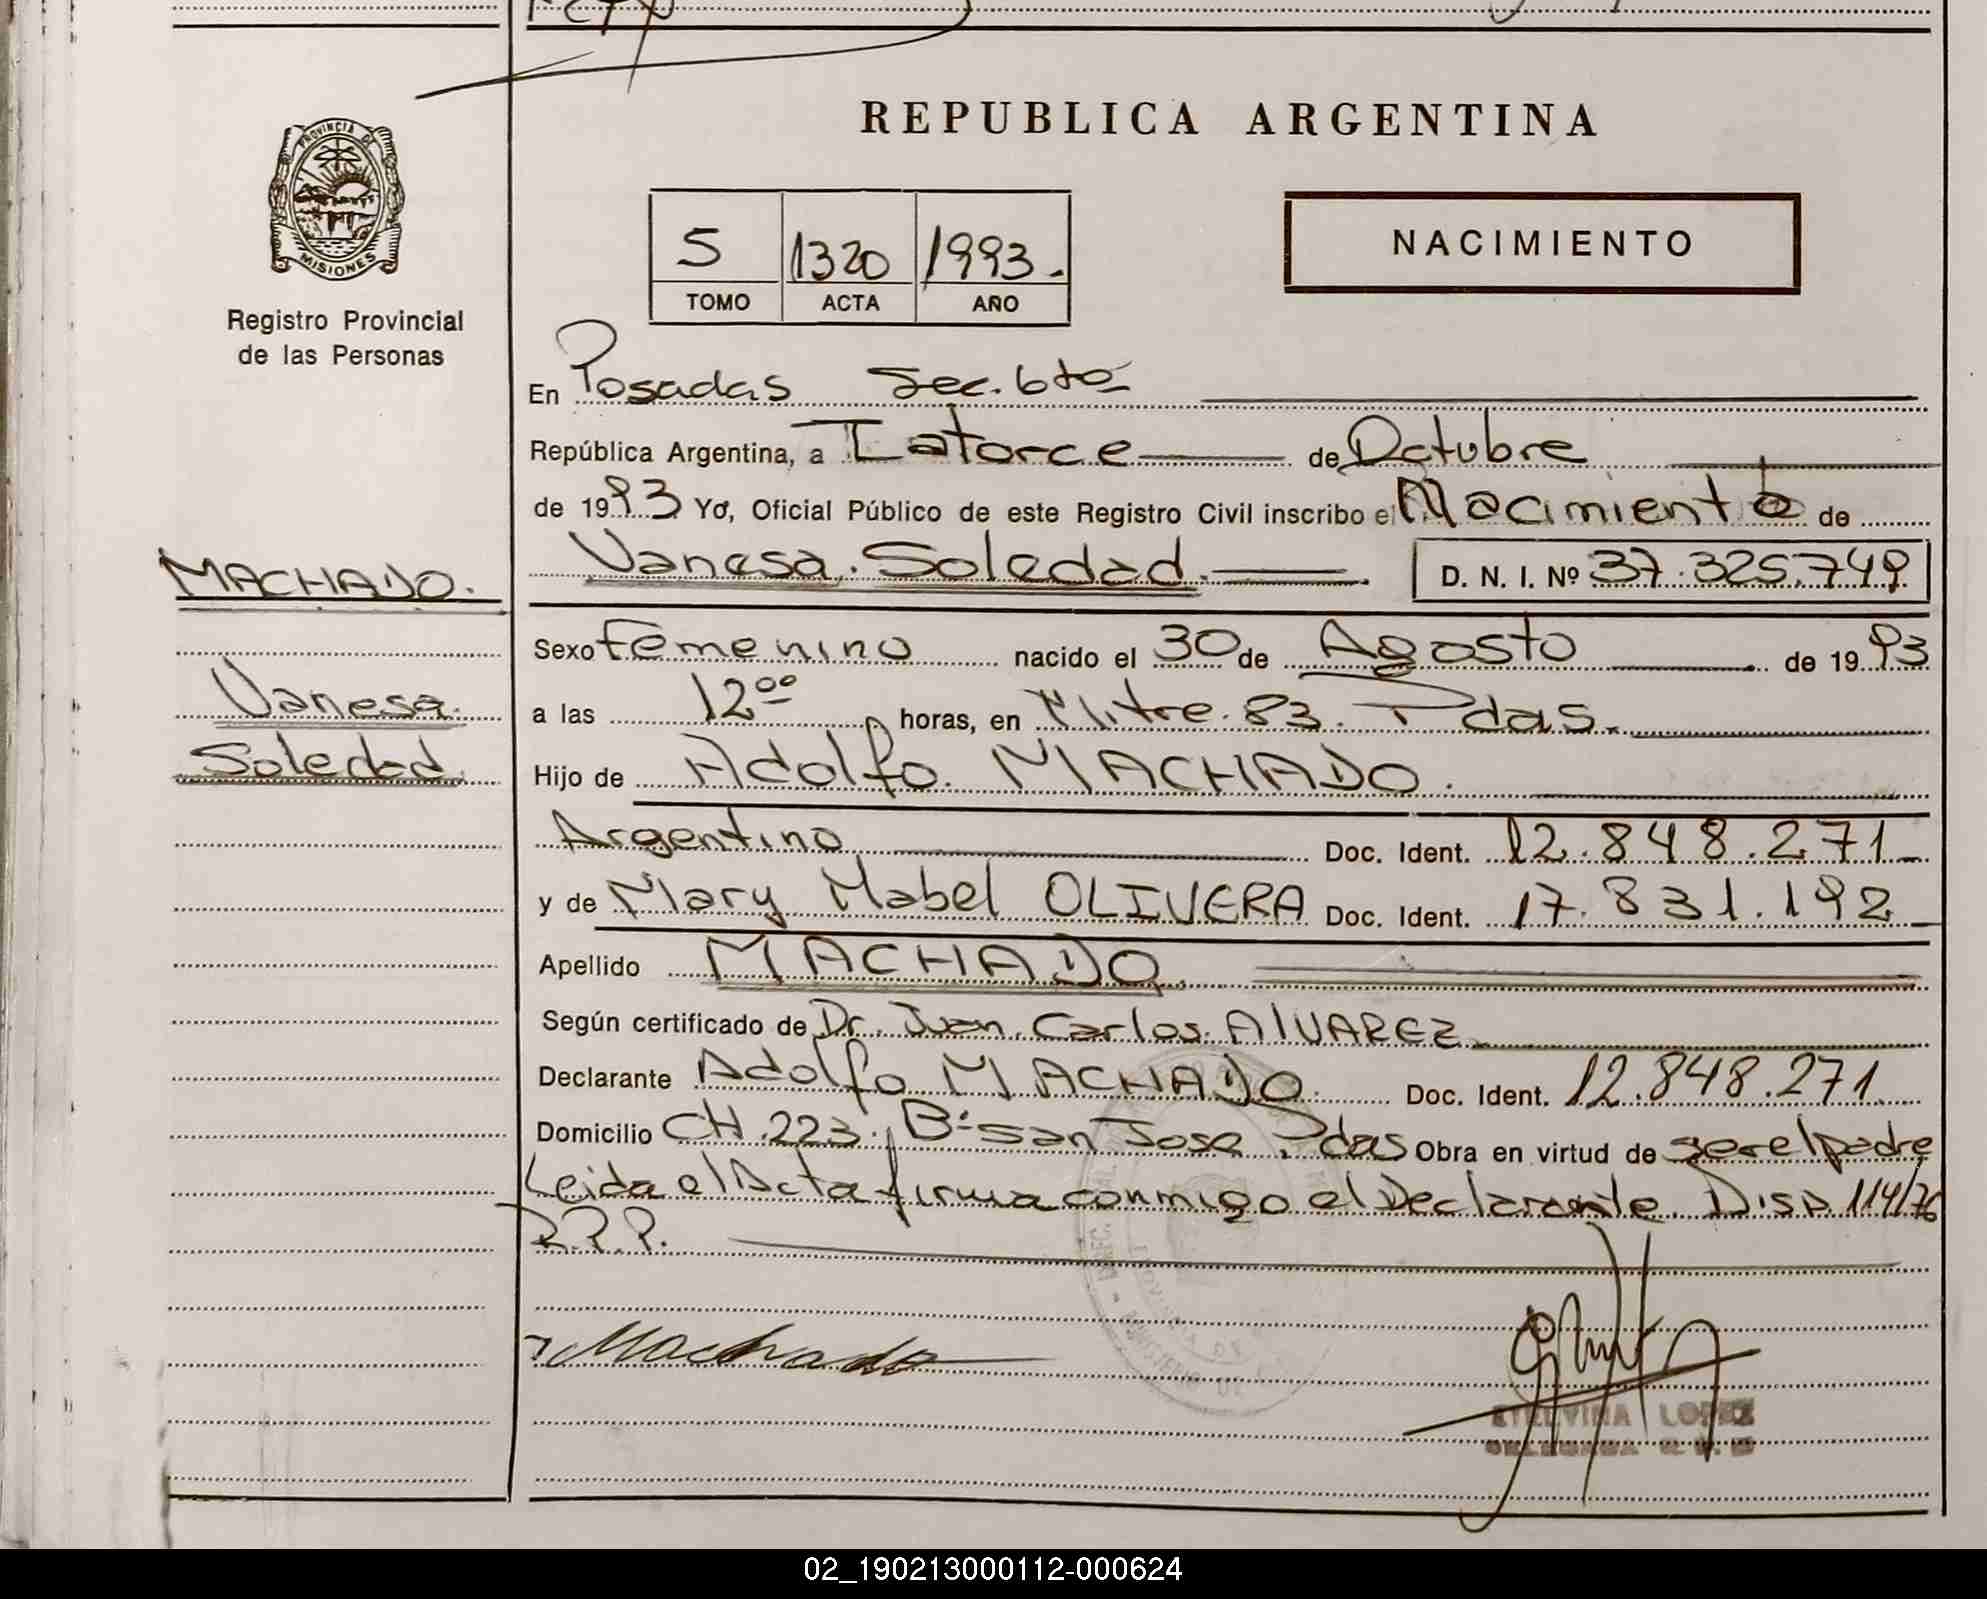 REPUBLICA ARGENTINA
PROVINCIA DE
MISIONES
Registro Provincial
de las Personas
5 1320 1993.
TOMO ACTA AÑO
NACIMIENTO
En Posadas Sec. 6ta
República Argentina, a Catorce de Octubre
de 1993 Yo, Oficial Público de este Registro Civil inscribo el Nacimiento de
MACHADO.
Vanesa. Soledad. D. N. I. Nº 37.325.749
Sexo Femenino nacido el 30 de Agosto de 1993
Vanesa.
Soledad.
a las 12 00 horas, en Mitre. 83. Pdas.
Hijo de Adolfo. MACHADO.
Argentino Doc. Ident. 12.848.271
y de Mary Mabel OLIVERA Doc. Ident. 17.831.192
Apellido MACHADO.
Según certificado de Dr. Juan. Carlos. AlVAREZ.
Declarante Adolfo MACHADO. Doc. Ident. 12.848.271.
Domicilio CH.223. Bº San Jose Pdas Obra en virtud de ser el padre
Leida el Acta firma conmigo el Declarante. Disp. 114/76
R.P.P.
Machado
ETELVINA LOPEZ
02_190213000112-000624